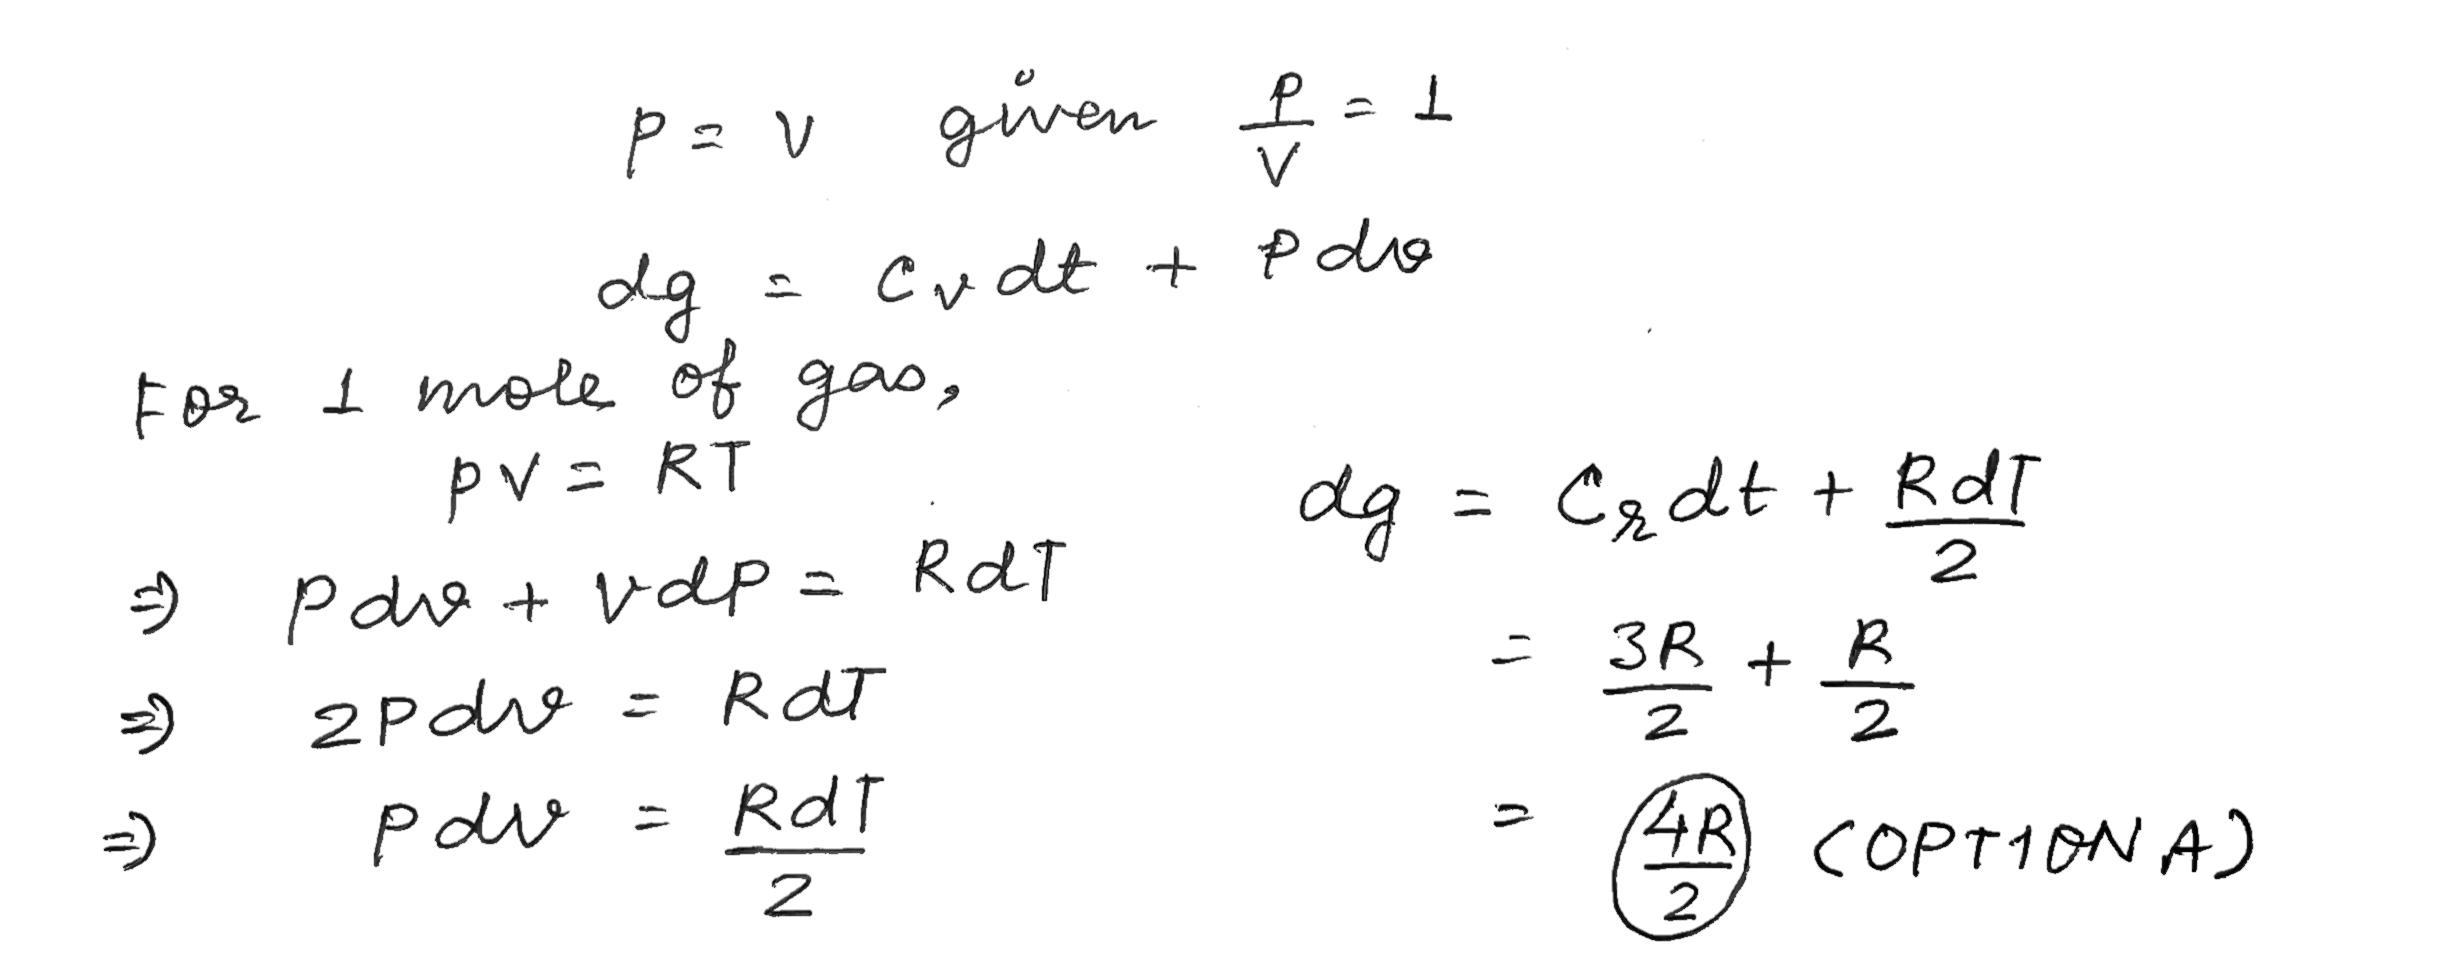 P = V given P/V = 1
dq = Cv dt + P dv
For 1 mole of gas,
PV = RT
⇒ Pdv + vdP = RdT
⇒ 2Pdv = RdT
⇒ Pdv = RdT/2
dq = Cr dt + RdT/2
= 3R/2 + R/2
= 4R/2 (OPTION A)